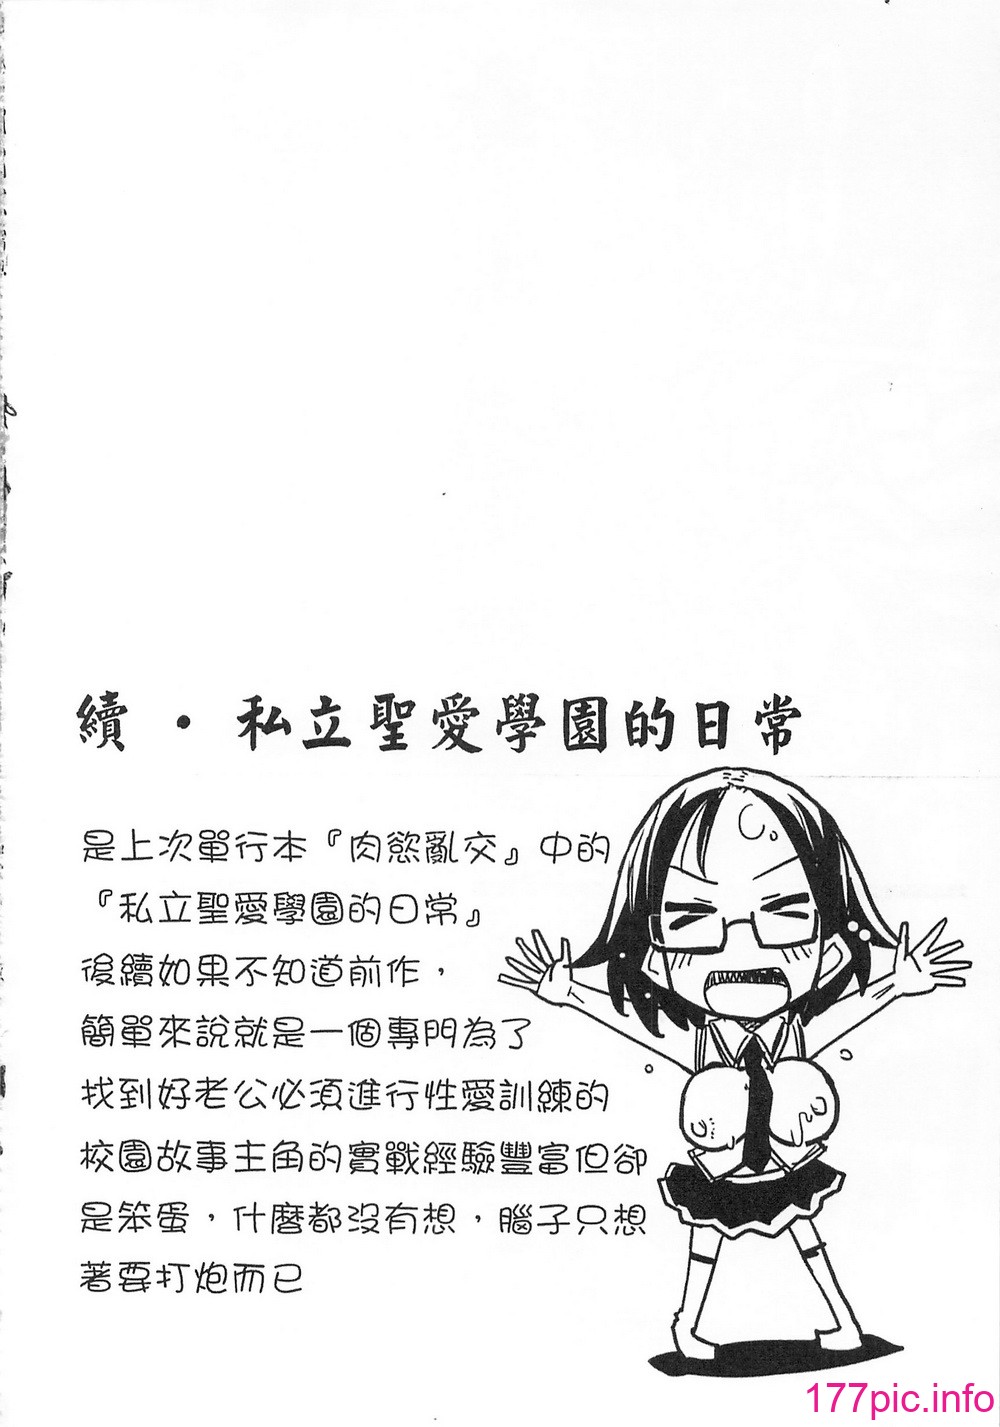 續・私立聖愛學園的日常
是上次單行本『肉慾亂交』中的
『私立聖愛學園的日常』
後續如果不知道前作，
簡單來說就是一個專門為了
找到好老公必須進行性愛訓練的
校園故事主角的實戰經驗豐富但卻
是笨蛋，什麼都沒有想，腦子只想
著要打炮而已
177pic.info